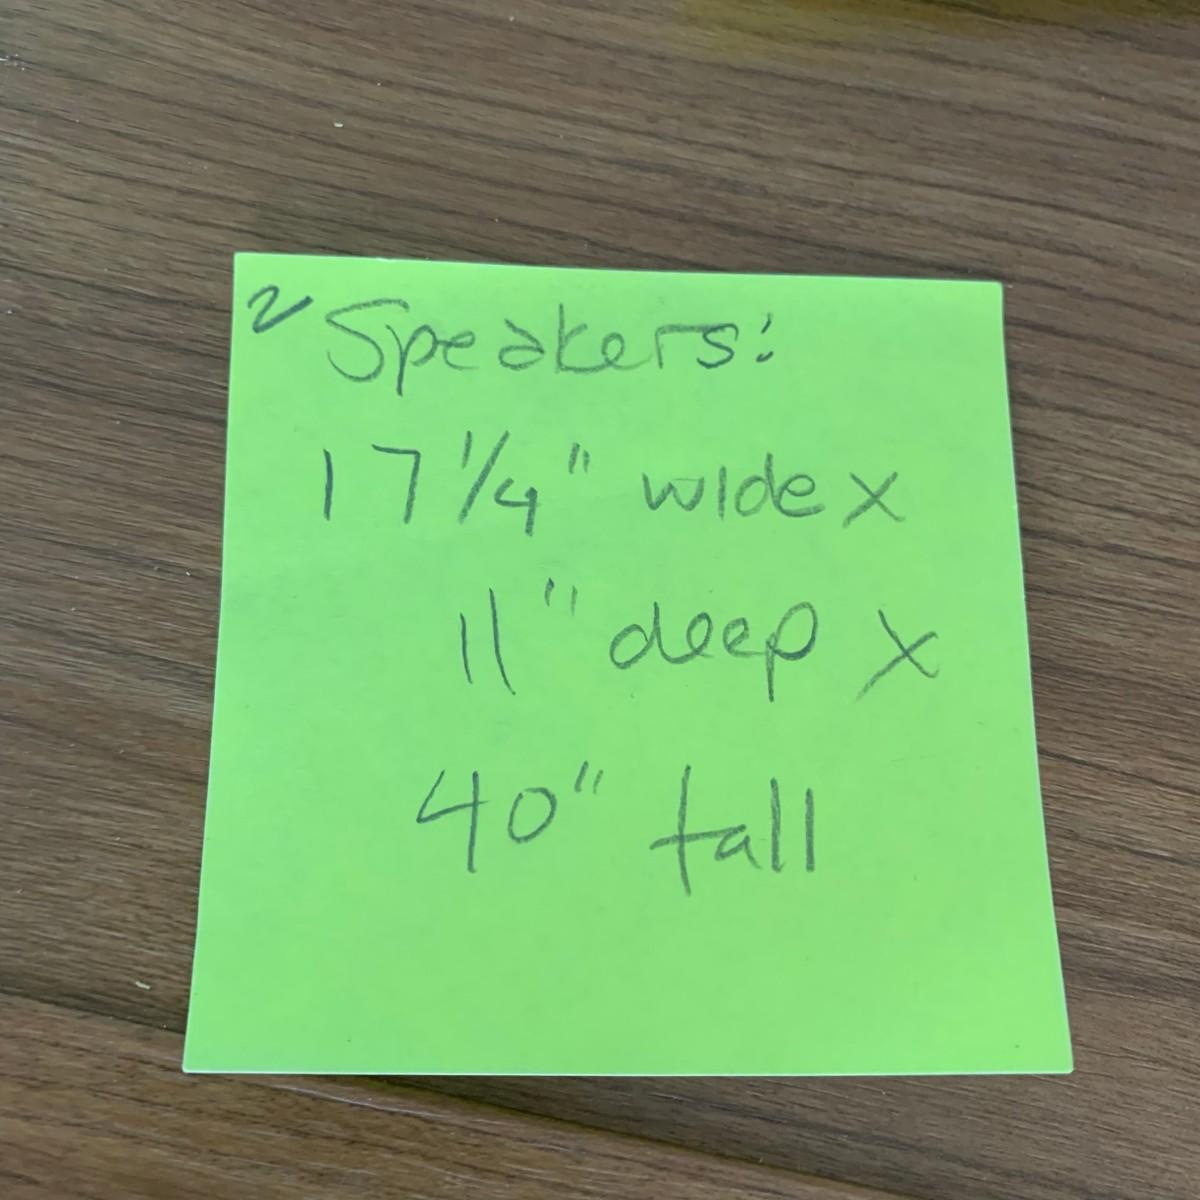 2 Speakers:
17 1/4" wide x
11" deep x
40" tall